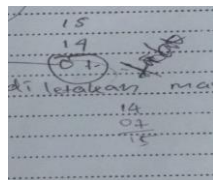 15
14
07
diletakan ma
14
07
15